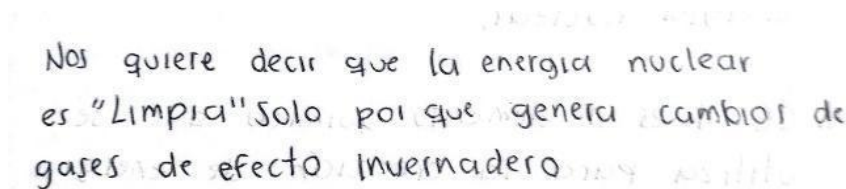 Nos quiere decir que la energia nuclear
es "Limpia" solo por que genera cambios de
gases de efecto invernadero